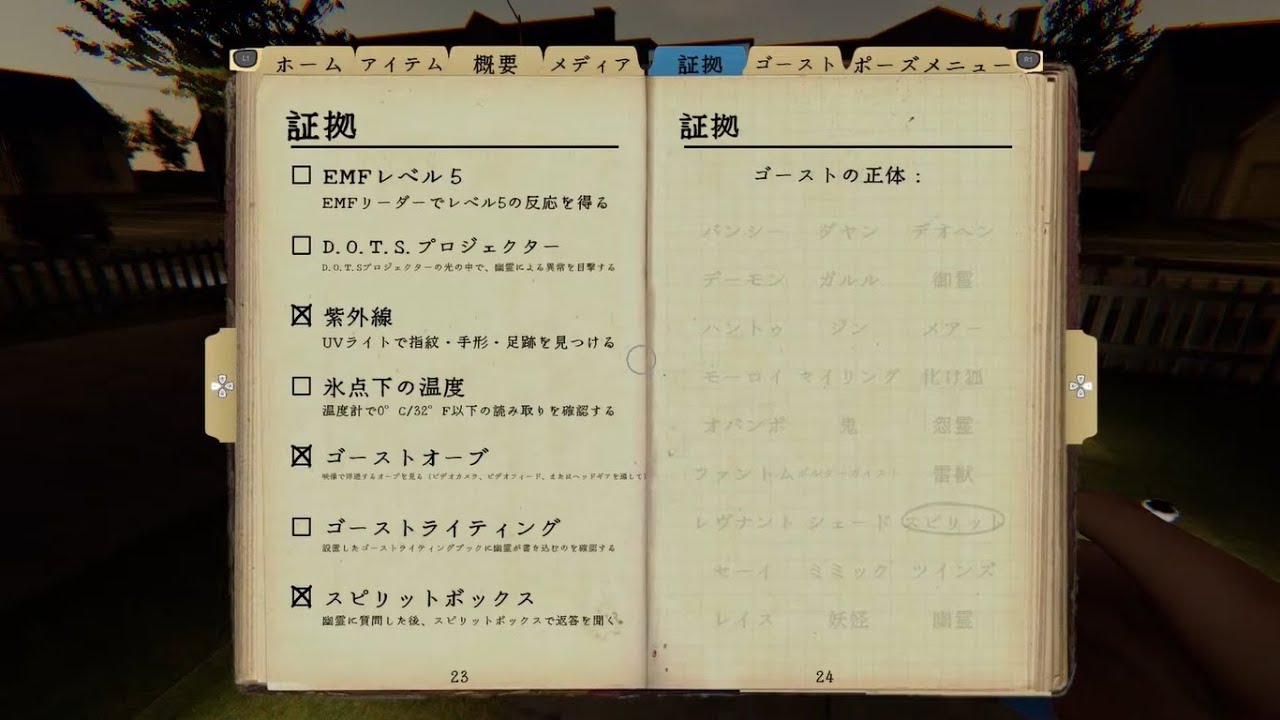 L1 ホーム アイテム 概要 メディア 証拠 ゴースト ポーズメニュー R1
証拠
□ EMFレベル5
EMFリーダーでレベル5の反応を得る
□ D.O.T.S.プロジェクター
D.O.T.Sプロジェクターの光の中で、幽霊による異常を目撃する
☒ 紫外線
UVライトで指紋・手形・足跡を見つける
□ 氷点下の温度
温度計で0°C/32°F以下の読み取りを確認する
☒ ゴーストオーブ
映像で浮遊するオーブを見る（ビデオカメラ、ビデオフィード、またはヘッドギアを通して）
□ ゴーストライティング
設置したゴーストライティングブックに幽霊が書き込むのを確認する
☒ スピリットボックス
幽霊に質問した後、スピリットボックスで返答を聞く
23
証拠
ゴーストの正体：
バンシー ダヤン デオヘン
デーモン ガルル 御霊
ハントゥ ジン メアー
モーロイ セイリング 化け狐
オバンボ 鬼 怨霊
ファントム ポルターガイスト 雷獣
レヴナント シェード スピリット
セーイ ミミック ツインズ
レイス 妖怪 幽霊
24